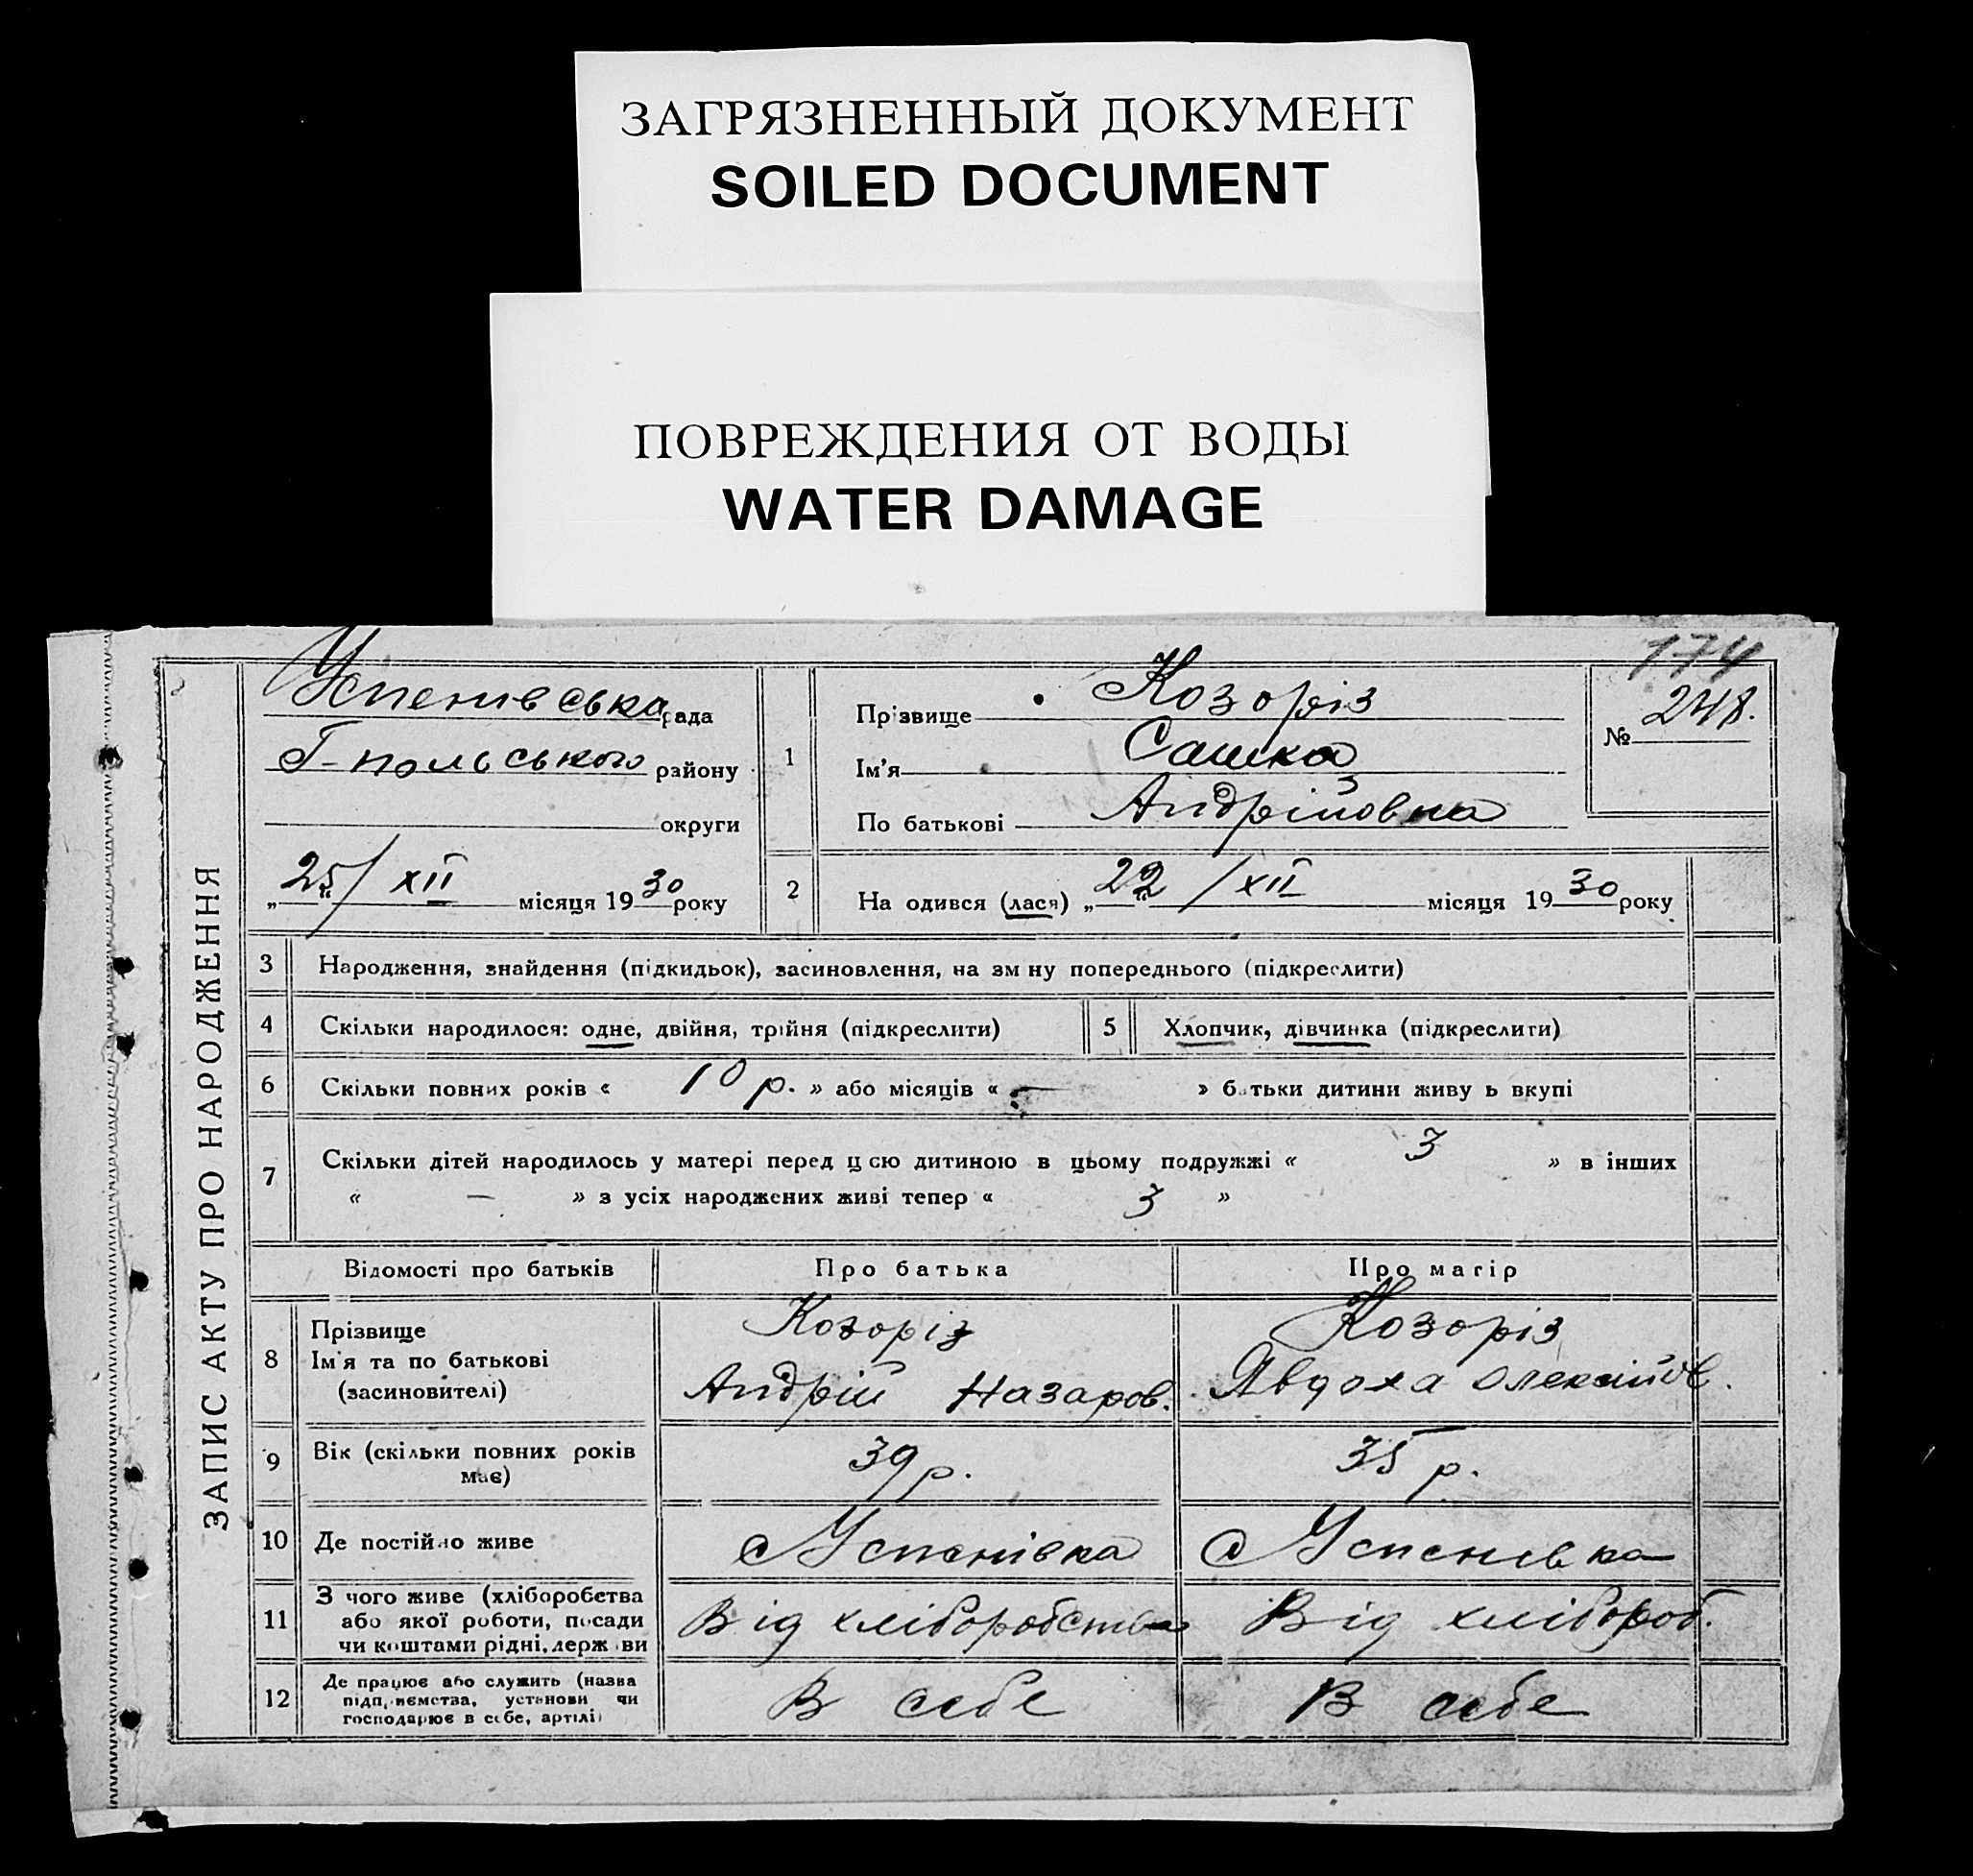 ЗАГРЯЗНЕННЫЙ ДОКУМЕНТ
SOILED DOCUMENT
ПОВРЕЖДЕНИЯ ОТ ВОДЫ
WATER DAMAGE
174
ЗАПИС АКТУ ПРО НАРОДЖЕННЯ
Успенівська рада
Г-польського району
округи
„25/XII місяця 1930 року
1
Прізвище Козоріз
Ім'я Сашка
По батькові Андрійовна
№ 248.
2 На одився (лася) „22/XII місяця 1930 року
3 Народження, знайдення (підкидьок), засиновлення, на зм ну попереднього (підкреслити)
4 Скільки народилося: одне, двійня, трійня (підкреслити) 5 Хлопчик, дівчинка (підкреслити)
6 Скільки повних років « 10 р. » або місяців « — » батьки дитини живу ь вкупі
7 Скільки дітей народилось у матері перед цєю дитиною в цьому подружжі « 3 » в інших
« — » з усіх народжених живі тепер « 3 »
Відомості про батьків Про батька Про матір
8 Прізвище Козоріз Козоріз
Ім'я та по батькові
(засиновителі) Андрій Назаров. Явдоха Олексійов.
9 Вік (скільки повних років має) 39 р. 35 р.
10 Де постійно живе с Успенівка с Успенівка
11 З чого живе (хліборобства
або якої роботи, посади
чи коштами рідні, держ ви Від хліборобства Від хлібороб.
12 Де працює або служить (назва
підприємства, установи чи
господарює в себе, артілі) В себе В себе